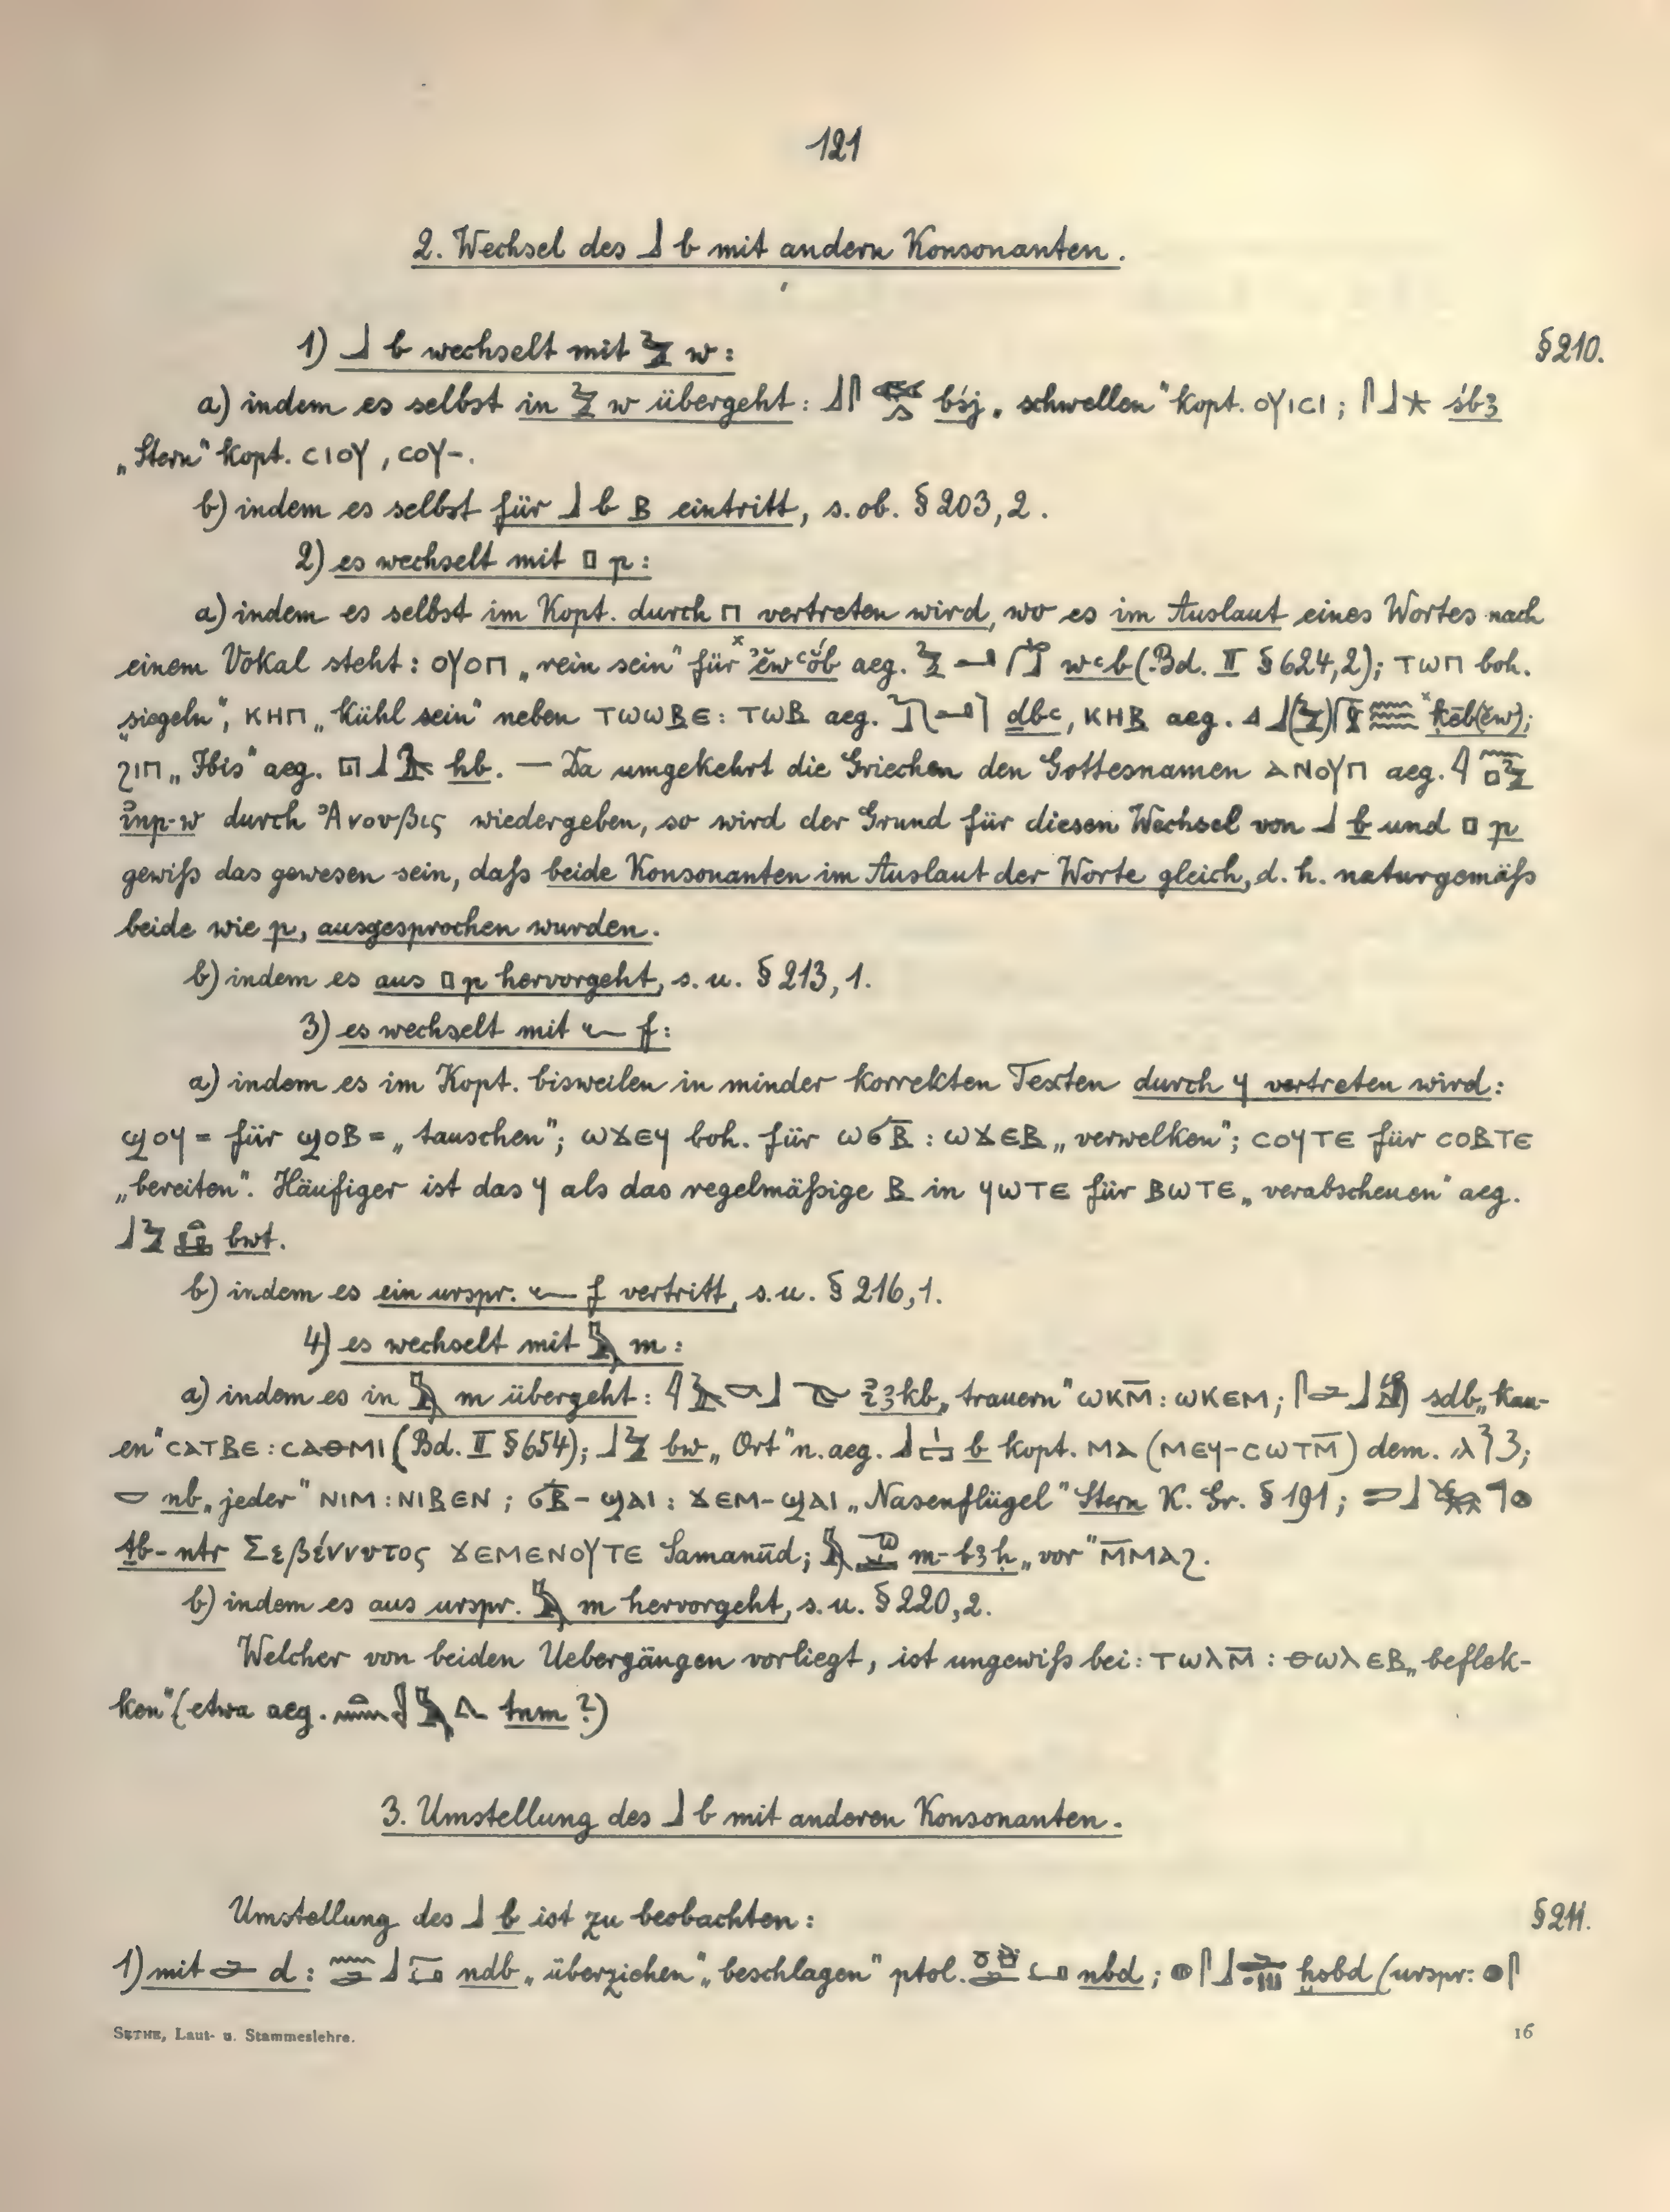 121
2. Wechsel des 𓃀 b mit andern Konsonanten.
1) 𓃀 b wechselt mit 𓅱 w: §210.
a) indem es selbst in 𓅱 w übergeht: 𓃀𓋴 bśj „schwellen" kopt. ⲟⲩⲓⲥⲓ; 𓋴𓃀𓇼 śbꜣ
„Stern" kopt. ⲥⲓⲟⲩ, ⲥⲟⲩ-.
b) indem es selbst für 𓃀 b ⲃ eintritt, s. ob. §203,2.
2) es wechselt mit 𓊪 p:
a) indem es selbst im Kopt. durch ⲡ vertreten wird, wo es im Auslaut eines Wortes nach
einem Vokal steht: ⲟⲩⲟⲡ „rein sein" für ˣꜣĕwꜥŏb aeg. 𓅱𓂝𓃀 wꜥb (Bd. II §624,2); ⲧⲱⲡ boh.
„siegeln", ⲕⲏⲡ „kühl sein" neben ⲧⲱⲱⲃⲉ: ⲧⲱⲃ aeg. dbꜥ, ⲕⲏⲃ aeg. 𓈎𓃀(𓅱) ˣḳēb(ĕw);
ϩⲓⲡ „Ibis" aeg. 𓉔𓃀 hb. — Da umgekehrt die Griechen den Gottesnamen ⲁⲛⲟⲩⲡ aeg. 𓇋𓈖𓊪𓅱
inp-w durch Ἀνουβις wiedergeben, so wird der Grund für diesen Wechsel von 𓃀 b und 𓊪 p
gewiß das gewesen sein, daß beide Konsonanten im Auslaut der Worte gleich, d. h. naturgemäß
beide wie p, ausgesprochen wurden.
b) indem es aus 𓊪 p hervorgeht, s. u. §213,1.
3) es wechselt mit 𓆑 f:
a) indem es im Kopt. bisweilen in minder korrekten Texten durch ϥ vertreten wird:
ϣⲟϥ= für ϣⲟⲃ= „tauschen"; ⲱϫⲉϥ boh. für ⲱϭⲃ̅: ⲱϫⲉⲃ „verwelken"; ⲥⲟϥⲧⲉ für ⲥⲟⲃⲧⲉ
„bereiten". Häufiger ist das ϥ als das regelmäßige ⲃ in ϥⲱⲧⲉ für ⲃⲱⲧⲉ „verabscheuen" aeg.
𓃀𓅱 bwt.
b) indem es ein urspr. 𓆑 f vertritt, s. u. §216,1.
4) es wechselt mit 𓅓 m:
a) indem es in 𓅓 m übergeht: 𓇋𓄿𓎡𓃀 iꜣkb „trauern" ⲱⲕⲙ̅: ⲱⲕⲉⲙ; 𓋴𓂧𓃀 sdb „kau-
en" ⲥⲁⲧⲃⲉ: ⲥⲁⲑⲙⲓ (Bd. II §654); 𓃀𓅱 bw „Ort" n. aeg. 𓃀 b kopt. ⲙⲁ (ⲙⲉϥ-ⲥⲱⲧⲙ̅) dem.
𓎟 nb „jeder" ⲛⲓⲙ: ⲛⲓⲃⲉⲛ; ϭⲃ̅-ϣⲁⲓ: ϫⲉⲙ-ϣⲁⲓ „Nasenflügel" Stern K. Gr. §191;
ṯb-nṯr Σεβέννυτος ϫⲉⲙⲉⲛⲟⲩⲧⲉ Samanūd; 𓅓 m-bꜣḥ „vor" ⲙ̅ⲙⲁϩ.
b) indem es aus urspr. 𓅓 m hervorgeht, s. u. §220,2.
Welcher von beiden Uebergängen vorliegt, ist ungewiß bei: ⲧⲱⲗⲙ̅: ⲑⲱⲗⲉⲃ „beflek-
ken" (etwa aeg. tnm?)
3. Umstellung des 𓃀 b mit anderen Konsonanten.
Umstellung des 𓃀 b ist zu beobachten: §211.
1) mit 𓂧 d: 𓈖𓂧𓃀 ndb „überziehen" „beschlagen" ptol. nbd; 𓐍𓋴𓃀𓂧 ḫsbd (urspr: 𓐍𓋴
SETHE, Laut- u. Stammeslehre. 16